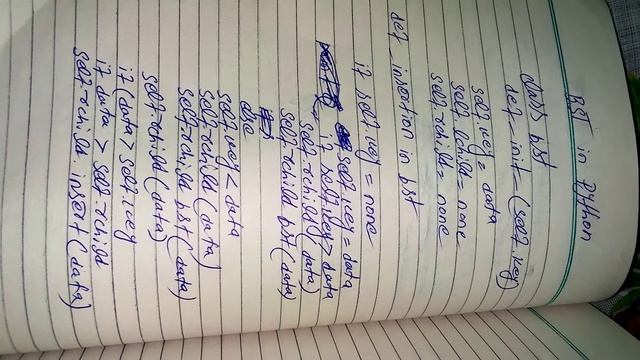 BST in Python
class bst
def -init- (self, key)
self.key = data
self.lchild = none
self.rchild = none
def insertion in bst
if self.key = none
self.key = data
if self.key > data
self.rchild (data)
self.rchild bst (data)
else
self.key < data
self.rchild (data)
self.rchild bst (data)
self.rchild (data)
if (data > self.key
if data > self.rchild
self.rchild insert (data)